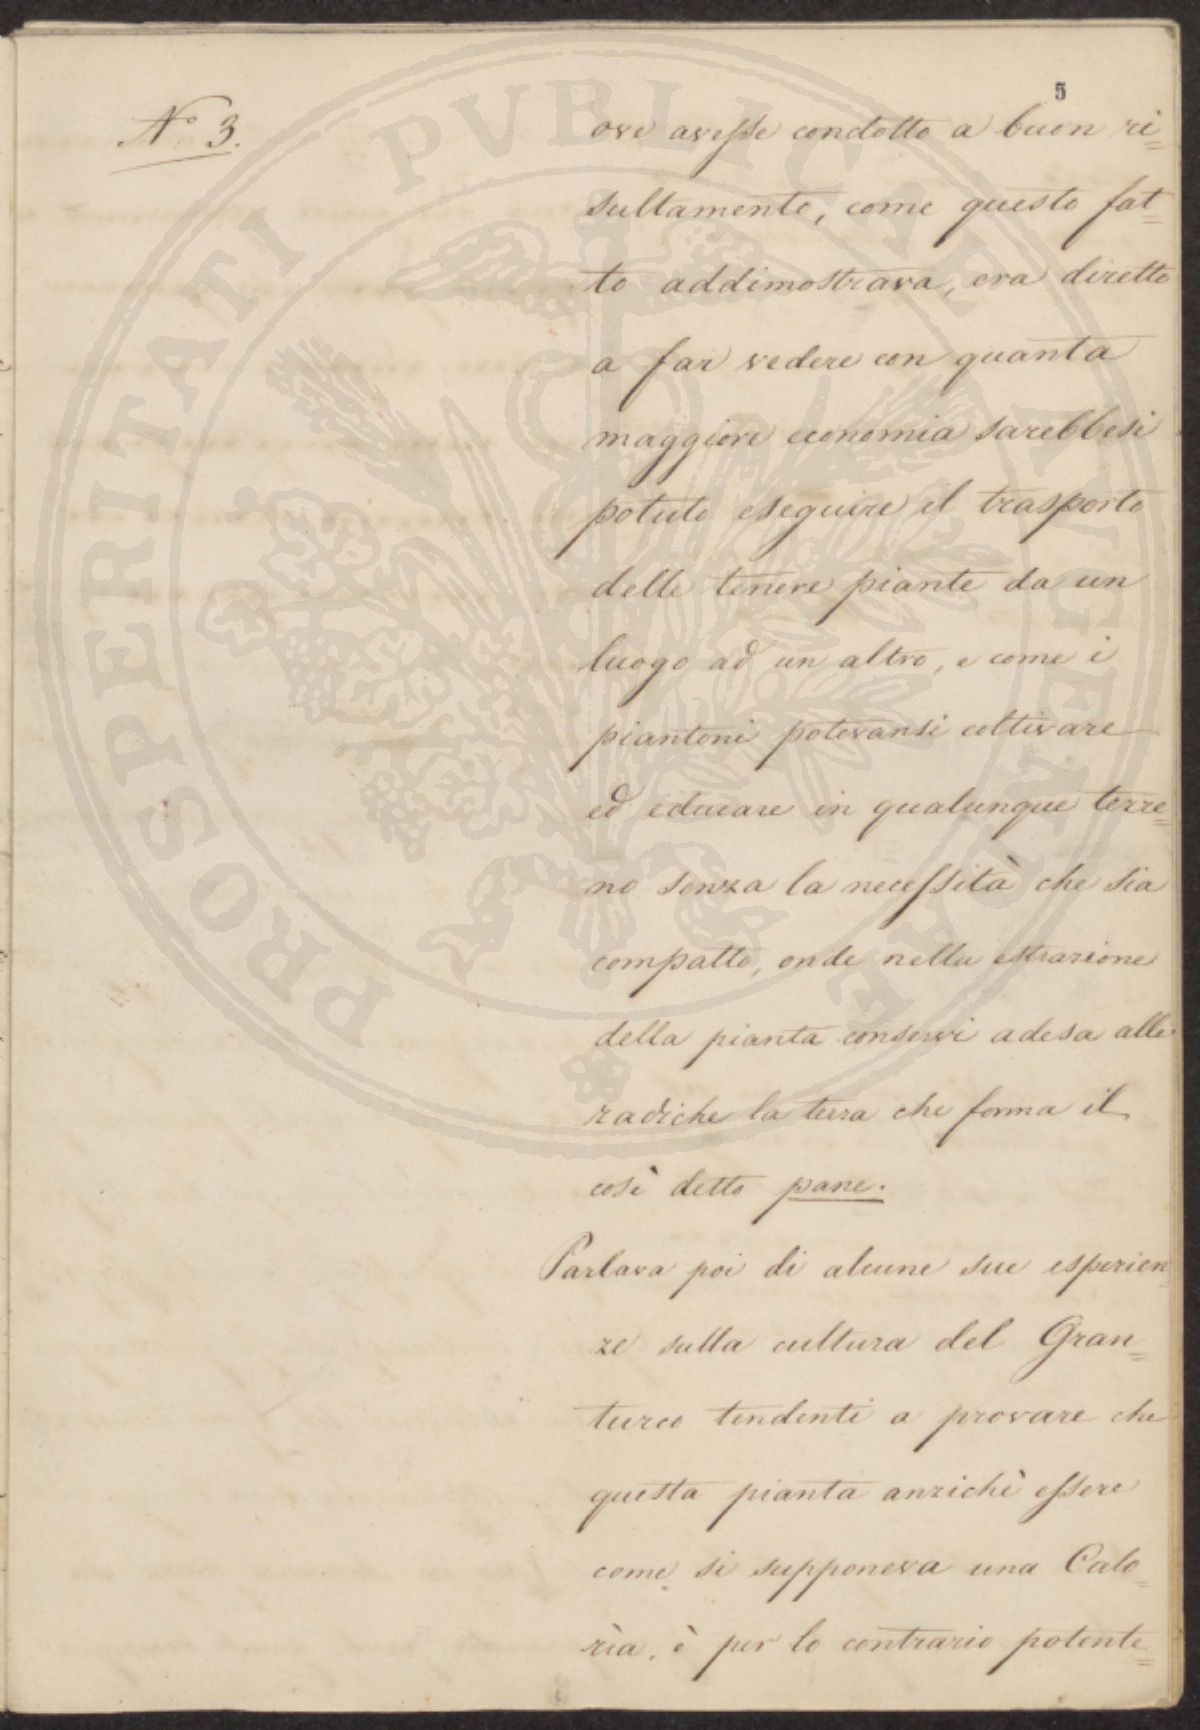 5
N.º 3.
ove avesse condotto a buon ri=
sultamento, come questo fat=
to addimostrava, era diretto
a far vedere con quanta
maggiore economia sarebbesi
potuto eseguire il trasporto
delle tenere piante da un
luogo ad un altro, e come i
piantoni potevansi coltivare
ed educare in qualunque terre=
no senza la necessità che sia
compatto, onde nella estrazione
della pianta conservi adesa alle
radiche la terra che forma il
così detto pane.
Parlava poi di alcune sue esperien=
ze sulla cultura del Gran=
turco tendenti a provare che
questa pianta anzichè essere
come si supponeva una Calo=
rìa, è per lo contrario potente=
PROSPERITATI PVBLICAE AVGENDAE